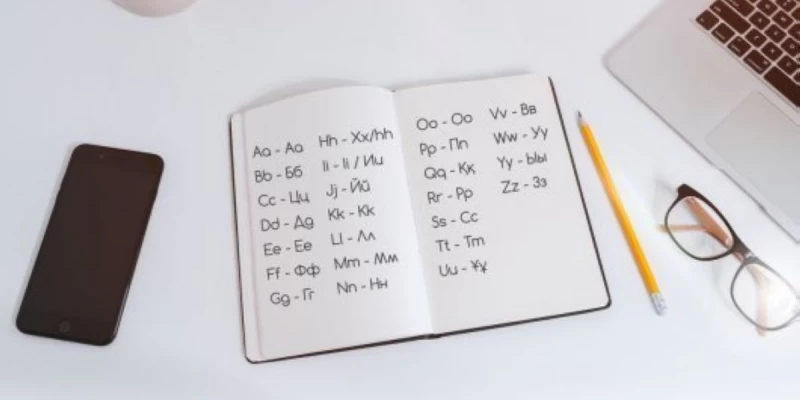 Aa - Аа
Bb - Бб
Cc - Цц
Dd - Дд
Ee - Ее
Ff - Фф
Gg - Гг
Hh - Хх/һһ
Ii - Іі / Ии
Jj - Йй
Kk - Кк
Ll - Лл
Mm - Мм
Nn - Нн
Oo - Оо
Pp - Пп
Qq - Ққ
Rr - Рр
Ss - Сс
Tt - Тт
Uu - Ұұ
Vv - Вв
Ww - Уу
Yy - Ыы
Zz - Зз